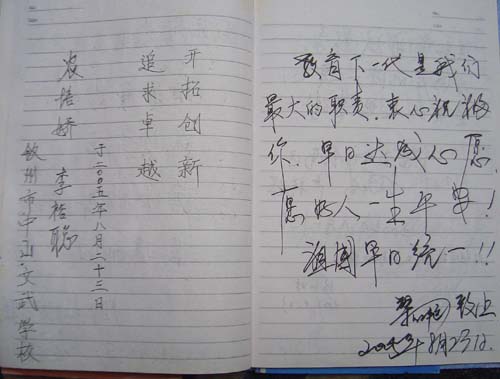 开拓创新
追求卓越
于二00五年八月二十三日
李祜聪
钦州市中山文武学校
教育下一代是我们
最大的职责.衷心祝福
你.早日达成心愿.
愿好人一生平安!
祖国早日统一!!
致上
2005年8月23日.